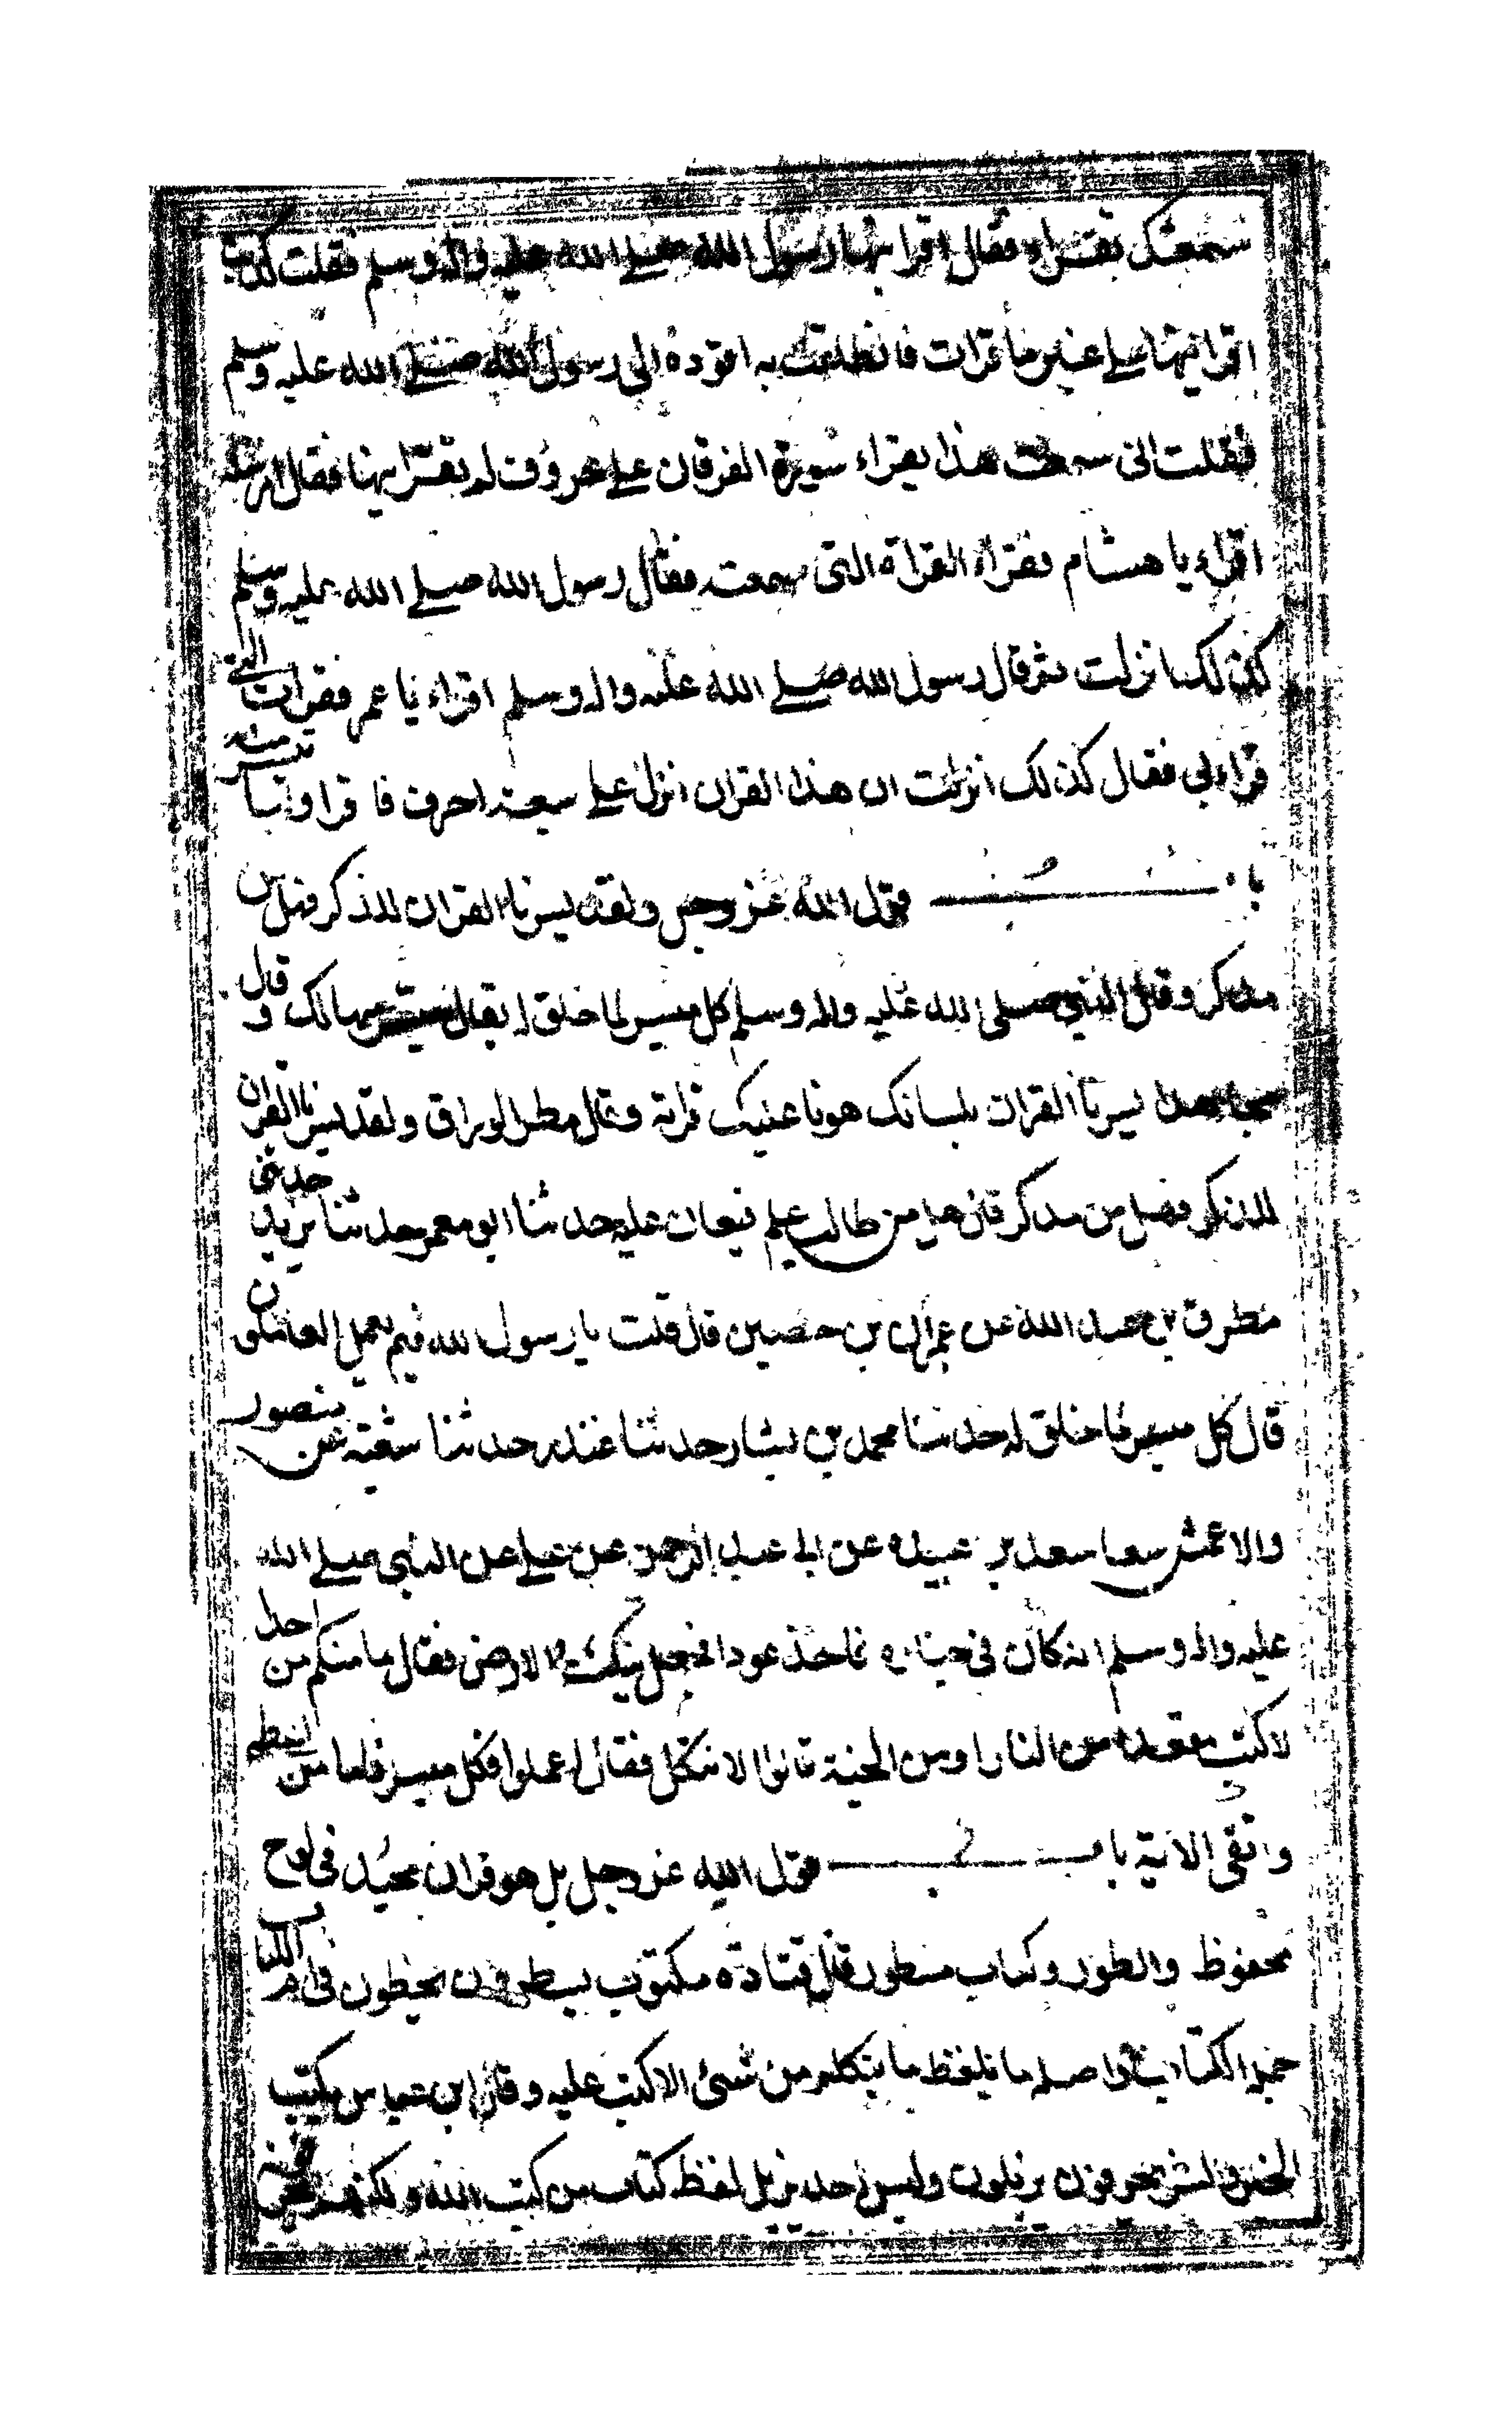 سمعتك تقراء فقال اقرانيها رسول الله صلى الله عليه واله وسلم فقلت كذبت
اقرانيها على غير ما قرات فانطلقت به اقوده الى رسول الله صلى الله عليه وسلم
فقلت انى سمعت هذا يقراء سورة الفرقان على حروف لم تقرانيها فقال ارسله
اقراء يا هشام فقراء القراة التى سمعته فقال رسول الله صلى الله عليه وسلم
كذلك انزلت ثم قال رسول الله صلى الله عليه واله وسلم اقراء يا عمر فقرات التى
اقرانى فقال كذلك انزلت ان هذا القران انزل على سبعة احرف فاقراوا ما تيسر منه
باب قول الله عز وجل ولقد يسرنا القران للذكر فهل من
مدكر وقال النبى صلى الله عليه واله وسلم كل ميسر لما خلق له يقال ميسر مهيا لك وقال
مجاهد يسرنا القران بلسانك هونا عليك قراته وقال مطر الوراق ولقد يسرنا القران
للذكر فهل من مدكر قال هل من طالب علم فيعان عليه حدثنا ابو معمر حدثنا يزيد حدثنى
مطرف بن عبد الله عن عمران بن حصين قال قلت يا رسول الله فيم يعمل العاملون
قال كل ميسر لما خلق له حدثنا محمد بن بشار حدثنا غندر حدثنا شعبة عن منصور
والاعمش سمعا سعد بن عبيدة عن ابى عبد الرحمن عن على عن النبى صلى الله
عليه واله وسلم انه كان فى جنازه فاخذ عودا فجعل ينكت فى الارض فقال ما منكم من احد
الا كتب مقعده من النار او من الجنة قالوا الا نتكل فقال اعملوا فكل ميسر فاما من اعطى
واتقى الآية باب قول الله عز وجل بل هو قران مجيد فى لوح
محفوظ والطور وكتاب مسطور قال قتادة مكتوب يسطرون يخطون فى ام الكتاب
جملة الكتاب واصله ما يلفظ ما يتكلم من شئ الا كتب عليه وقال ابن عباس يكتب
الخير والشر يحرفون يزيلون وليس احد يزيل لفظ كتاب من كتب الله ولكنهم